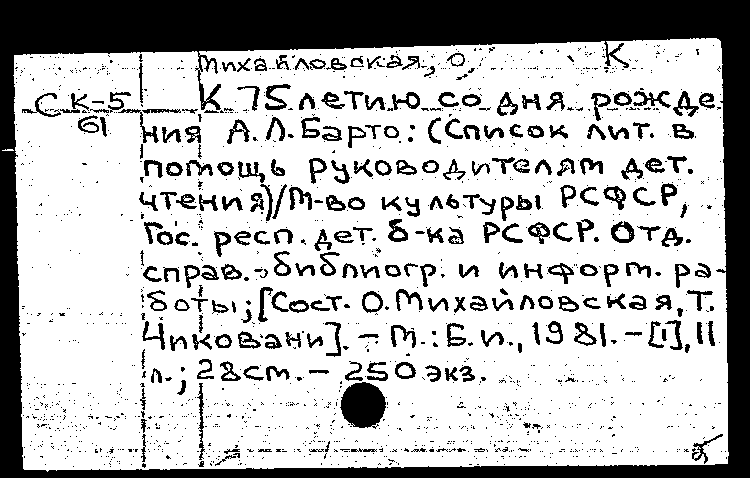 Михайловская, О. К
СК-5 К 75 летию со дня рожде
61 ния А.Л.Барто: (Список лит. в
помощь руководителям дет.
чтения)/М-во культуры РСФСР,
Гос. респ. дет. б-ка РСФСР. Отд.
справ.-библиогр. и информ. ра-
боты; [Сост. О.Михайловская, Т.
Чиковани]. – М.: Б.и., 1981. – [1], 11
л.; 28 см. – 250 экз.